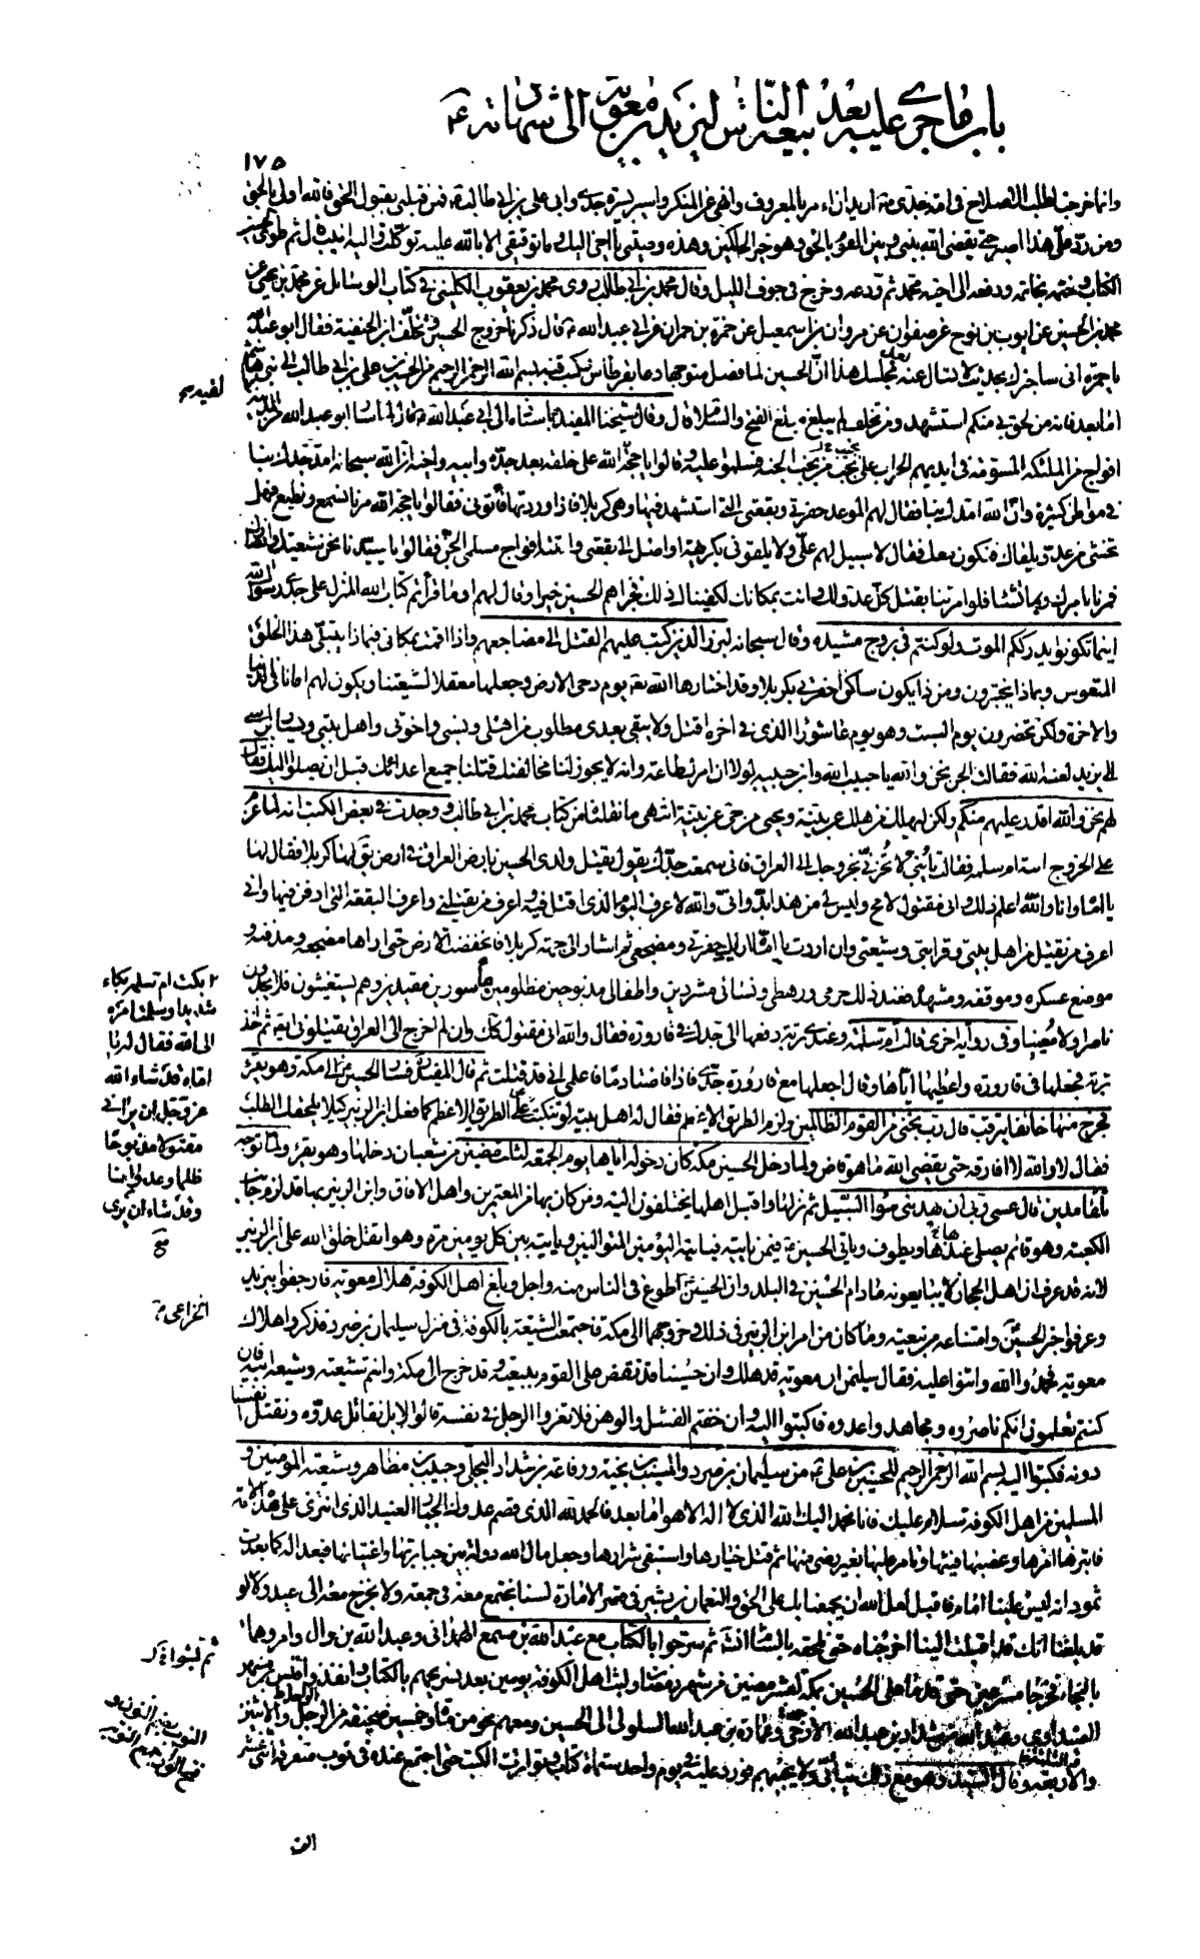 باب ماجرى عليه بعد بيعة الناس ليزيد بن معوية الى شهادته
١٧٥
وانما خرجت اطلب الصلاح فى امة جدى اريد ان امر بالمعروف وانهى عن المنكر واسير بسيرة جدى وابى على بن ابى طالب فمن قبلنى بقبول الحق فالله اولى بالحق
ومن رد على هذا اصبر حتى يقضى الله بينى وبين القوم بالحق وهو خير الحاكمين وهذه وصيتى يا اخى اليك وما توفيقى الا بالله عليه توكلت واليه انيب قال ثم طوى الحسين
الكتاب وختمه بخاتمه ودفعه الى اخيه محمد ثم ودعه وخرج فى جوف الليل وقال محمد بن ابى طالب روى محمد بن يعقوب الكلينى فى كتاب الوسائل عن محمد بن يحيى عن
محمد بن الحسين عن ايوب بن نوح عن صفوان عن مروان بن اسمعيل عن حمزة بن حمران عن ابى عبد الله قال ذكرنا خروج الحسين وتخلف ابن الحنفية فقال ابو عبد الله
يا حمزة انى ساخبرك بحديث لا تسال عنه بعد مجلسك هذا ان الحسين لما فصل متوجها دعا بقرطاس فكتب فيه بسم الله الرحمن الرحيم من الحسين بن على بن ابى طالب الى بنى هاشم
اما بعد فانه من لحق بى منكم استشهد ومن تخلف لم يبلغ مبلغ الفتح والسلام قال وقال شيخنا المفيد باسناده الى ابى عبد الله قال لما سار ابو عبد الله من المدينة
لقيه
افواج من الملئكة المسومة فى ايديهم الحراب على نجب من نجب الجنة فسلموا عليه وقالوا يا حجة الله على خلقه بعد جده وابيه واخيه ان الله سبحانه امد جدك بنا
فى مواطن كثيرة وان الله امدك بنا فقال لهم الموعد حفرتى وبقعتى التى استشهد فيها وهى كربلا فاذا وردتها فاتونى فقالوا يا حجة الله مرنا نسمع ونطع فهل
تخشى من عدو يلقاك فنكون معك فقال لا سبيل لهم على ولا يلقونى بكريهة او اصل الى بقعتى واتته افواج مسلمى الجن فقالوا يا سيدنا نحن شيعتك وانصارك
فمرنا بامرك وما تشاء فلو امرتنا بقتل كل عدو لك وانت بمكانك لكفيناك ذلك فجزاهم الحسين خيرا وقال لهم او ما قرأتم كتاب الله المنزل على جدى رسول الله
اينما تكونوا يدرككم الموت ولو كنتم فى بروج مشيدة وقال سبحانه لبرز الذين كتب عليهم القتل الى مضاجعهم واذا اقمت بمكانى فبماذا يبتلى هذا الخلق
المتعوس وبماذا يختبرون ومن ذا يكون ساكن حفرتى بكربلا وقد اختارها الله يوم دحى الارض وجعلها معقلا لشيعتنا ويكون لهم امانا فى الدنيا
والاخرة ولكن تحضرون يوم السبت وهو يوم عاشورا الذى فى اخره اقتل ولا يبقى بعدى مطلوب من اهلى ونسبى واخوتى واهل بيتى ويسار براسى
الى يزيد لعنه الله فقالت الجن نحن والله يا حبيب الله وابن حبيبه لولا ان امرك طاعة وانه لا يجوز لنا مخالفتك قتلنا جميع اعدائك قبل ان يصلوا اليك فقال
لهم نحن والله اقدر عليهم منكم ولكن ليهلك من هلك عن بينة ويحيى من حى عن بينة انتهى ما نقلناه من كتاب محمد بن ابى طالب ووجدت فى بعض الكتب انه لما عزم
على الخروج اتته ام سلمة فقالت يا بنى لا تحزنى بخروجك الى العراق فانى سمعت جدك يقول يقتل ولدى الحسين بارض العراق فى ارض يقال لها كربلا فقال لها
يا اماه وانا والله اعلم ذلك وانى مقتول لا محالة وليس لى من هذا بد وانى والله لاعرف اليوم الذى اقتل فيه واعرف من يقتلنى واعرف البقعة التى ادفن فيها وانى
اعرف من يقتل من اهل بيتى وقرابتى وشيعتى وان اردت يا اماه اريك حفرتى ومضجعى ثم اشار الى جهة كربلا فانخفضت الارض حتى اراها مضجعه ومدفنه و
موضع عسكره وموقفه ومشهده فعند ذلك حرمى ورهطى ونسائى مشردين واطفالى مذبوحين مظلومين ماسورين مقيدين وهم يستغيثون فلا يجدون
بكت ام سلمة بكاء
شديدا وسلمت امره
الى الله فقال لها يا
اماه قد شاء الله
عز وجل ان يرانى
مقتولا مذبوحا
ظلما وعدوانا
وقد شاء ان يرى
صح
ناصرا ولا معينا وفى رواية اخرى قالت ام سلمة وعندى تربة دفعها الى جدك فى قارورة فقال والله انى مقتول كذلك وان لم اخرج الى العراق يقتلونى ايضا ثم اخذ
تربة فجعلها فى قارورة واعطاها اياها وقال اجعلها مع قارورة جدى فاذا فاضتا دما فاعلمى انى قد قتلت ثم قال المفيد فسار الحسين الى مكة وهو يقرأ
فخرج منها خائفا يترقب قال رب نجنى من القوم الظالمين ولزم الطريق الاعظم فقال له اهل بيته لو تنكبت الطريق الاعظم كما فعل ابن الزبير كيلا يلحقك الطلب
فقال لا والله لا افارقه حتى يقضى الله ما هو قاض ولما دخل الحسين مكة كان دخوله اياها يوم الجمعة لثلث مضين من شعبان دخلها وهو يقرء ولما توجه
تلقاء مدين قال عسى ربى ان يهدينى سواء السبيل ثم نزلها واقبل اهلها يختلفون اليه ومن كان بها من المعتمرين واهل الافاق وابن الزبير بها قد لزم جانب
الكعبة وهو قائم يصلى عندها ويطوف وياتى الحسين فيمن ياتيه فياتيه اليومين المتواليين وياتيه بين كل يومين مرة وهو اثقل خلق الله على ابن الزبير
لانه قد عرف ان اهل الحجاز لا يبايعونه مادام الحسين فى البلد وان الحسين اطوع فى الناس منه واجل وبلغ اهل الكوفة هلاك معوية فارجفوا بيزيد
وعرفوا خبر الحسين وامتناعه من بيعته وما كان من امر ابن الزبير فى ذلك وخروجهما الى مكة فاجتمعت الشيعة بالكوفة فى منزل سليمان بن صرد فذكروا هلاك
الخزاعى
معوية فحمدوا الله واثنوا عليه فقال سليمن ان معوية قد هلك وان حسينا قد نقض على القوم ببيعته وقد خرج الى مكة وانتم شيعته وشيعة ابيه فان
كنتم تعلمون انكم ناصروه ومجاهدوا عدوه فاكتبوا اليه وان خفتم الفشل والوهن فلا تغروا الرجل فى نفسه قالوا لا بل نقاتل عدوه ونقتل انفسنا
دونه فكتبوا اليه بسم الله الرحمن الرحيم للحسين بن على من سليمان بن صرد والمسيب بن نجبة ورفاعة بن شداد البجلى وحبيب بن مظاهر وشيعته المؤمنين و
المسلمين من اهل الكوفة سلام عليك فانا نحمد اليك الله الذى لا اله الا هو اما بعد فالحمد لله الذى قصم عدوك الجبار العنيد الذى انتزى على هذه الامة
فابتزها امرها وغصبها فيئها وتامر عليها بغير رضى منها ثم قتل خيارها واستبقى شرارها وجعل مال الله دولة بين جبابرتها واغنيائها فبعدا له كما بعدت
ثمود انه ليس علينا امام فاقبل لعل الله ان يجمعنا بك على الحق والنعمان بن بشير فى قصر الامارة لسنا نجتمع معه فى جمعة ولا نخرج معه الى عيد ولو
قد بلغنا انك قد اقبلت الينا اخرجناه حتى نلحقه بالشام انشاء الله ثم سرحوا بالكتاب مع عبد الله بن مسمع الهمدانى وعبد الله بن وال وامروهما
بالنجاء فخرجا مسرعين حتى قدما على الحسين بمكة لعشر مضين من شهر رمضان ولبث اهل الكوفة يومين بعد تسريحهم بالكتاب وانفذوا قيس بن مسهر
ثم لبثوا
الصيداوى وعبد الله بن شداد بن عبد الله الارحبى وعمارة بن عبد الله السلولى الى الحسين ومعهم نحو من مائة وخمسين صحيفة من الرجل والاثنين
والاربعة وقال السيد وهو مع ذلك يتأبى ولا يجيبهم فورد عليه فى يوم واحد ستمائة كتاب وتواترت الكتب حتى اجتمع عنده فى نوب متفرقة اثنى عشر
الف